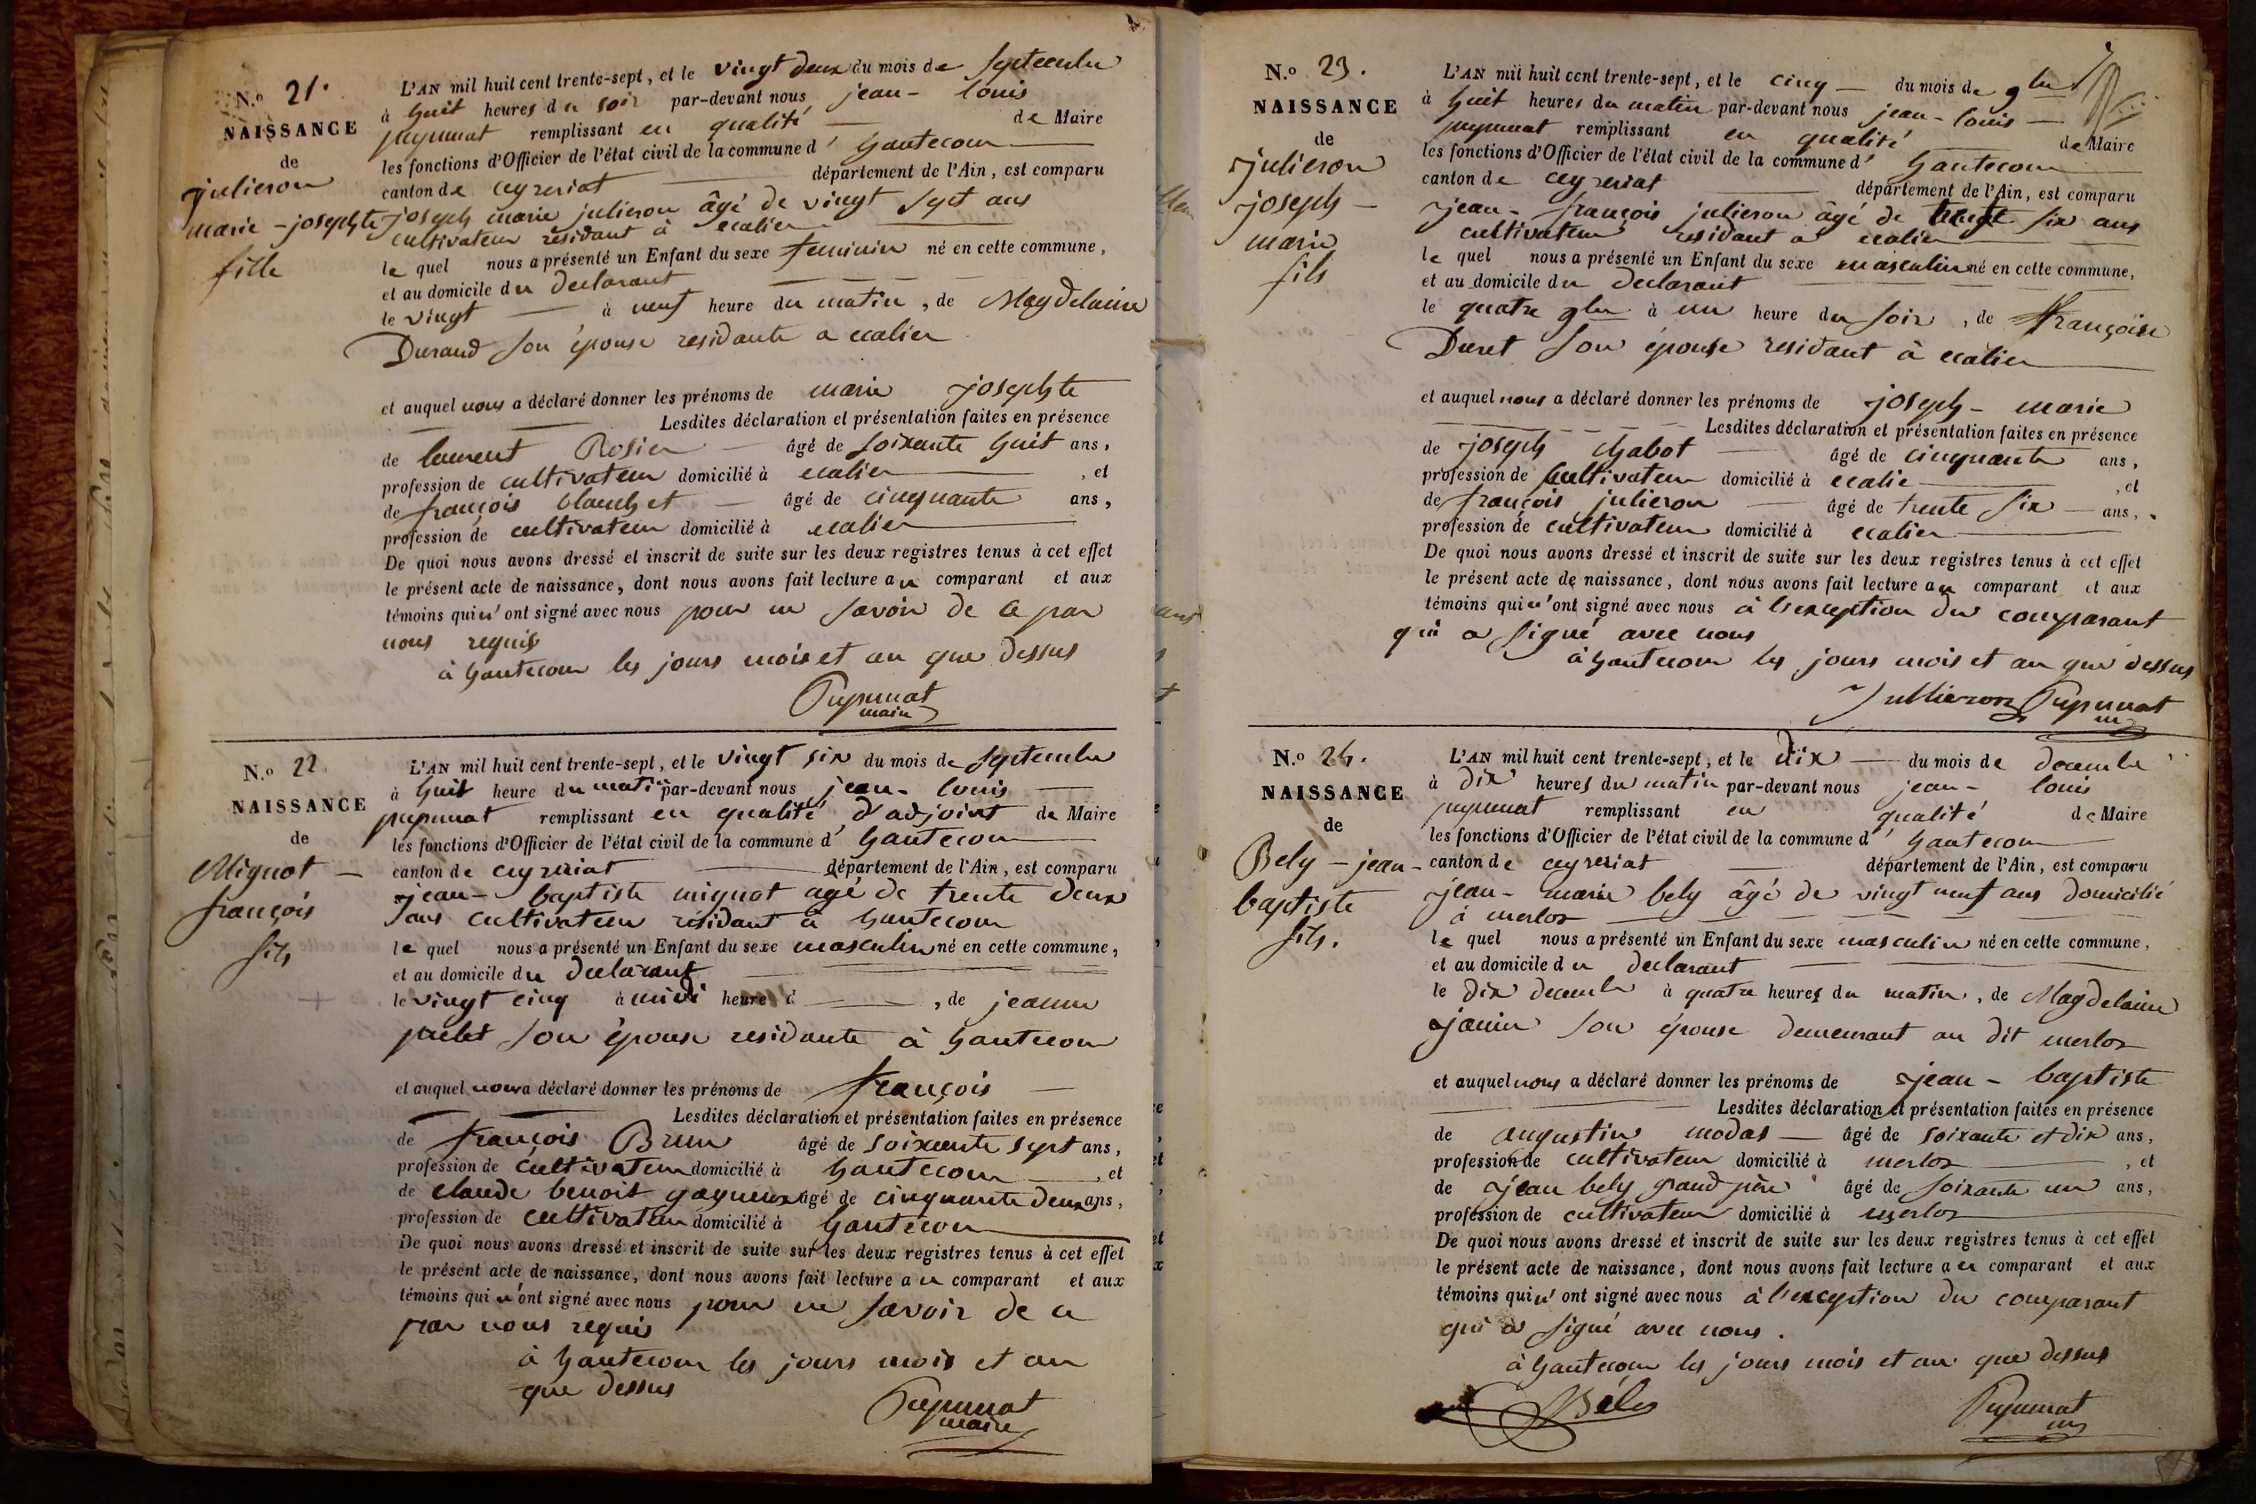 N.o 21.
NAISSANCE
de
julieron
marie - josephte
fille
L'AN mil huit cent trente-sept, et le vingt deux du mois de septembre
à huit heures du soir par-devant nous jean - louis
pupunat remplissant en qualité de Maire
les fonctions d'Officier de l'état civil de la commune d' hautecour
canton de ceyzeriat département de l'Ain, est comparu
joseph marie julieron âgé de vingt sept ans
cultivateur résidant à
le quel nous a présenté un Enfant du sexe feminin né en cette commune,
et au domicile du declarant
le vingt à neuf heure du matin, de Magdelaine
Durand son épouse residante a
et auquel nous a déclaré donner les prénoms de marie josephte
Lesdites déclaration et présentation faites en présence
de laurent Rosier âgé de soixante huit ans,
profession de cultivateur domicilié à , et
de françois blanchet âgé de cinquante ans,
profession de cultivateur domicilié à
De quoi nous avons dressé et inscrit de suite sur les deux registres tenus à cet effet
le présent acte de naissance, dont nous avons fait lecture au comparant et aux
témoins qui n'ont signé avec nous pour ne savoir de ce par
nous requis
à hautecour les jours mois et an que dessus
Pupunat
maire
N.o 22
NAISSANCE
de
Mignot -
françois
fils
L'AN mil huit cent trente-sept, et le vingt six du mois de septembre
à huit heure du matin par-devant nous jean - louis
pupunat remplissant en qualité d'adjoint de Maire
les fonctions d'Officier de l'état civil de la commune d' hautecour
canton de ceyzeriat département de l'Ain, est comparu
jean - baptiste mignot agé de trente deux
ans cultivateur résidant à hautecour
le quel nous a présenté un Enfant du sexe masculin né en cette commune,
et au domicile du declarant
le vingt cinq à midi heure d , de jeanne
son épouse residante à hautecour
et auquel nous a déclaré donner les prénoms de françois
Lesdites déclaration et présentation faites en présence
de françois Brun âgé de soixante sept ans,
profession de cultivateur domicilié à hautecour , et
de claude benoit âgé de cinquante deux ans,
profession de cultivateur domicilié à hautecour
De quoi nous avons dressé et inscrit de suite sur les deux registres tenus à cet effet
le présent acte de naissance, dont nous avons fait lecture au comparant et aux
témoins qui n'ont signé avec nous pour ne savoir de ce
par nous requis
à hautecour les jours mois et an
que dessus
Pupunat
maire
N.o 23.
NAISSANCE
de
julieron
joseph -
marie
fils
L'AN mil huit cent trente-sept, et le cinq du mois de 9bre
à huit heures du matin par-devant nous jean - louis
pupunat remplissant en qualité de Maire
les fonctions d'Officier de l'état civil de la commune d' hautecour
canton de ceyzeriat département de l'Ain, est comparu
jean - françois julieron âgé de six ans
cultivateur residant a
le quel nous a présenté un Enfant du sexe masculin né en cette commune,
et au domicile du declarant
le quatre 9bre à un heure du soir, de françoise
Duret son épouse residant à
et auquel nous a déclaré donner les prénoms de joseph - marie
Lesdites déclaration et présentation faites en présence
de joseph chabot âgé de cinquante ans,
profession de cultivateur domicilié à , et
de françois julieron âgé de trente six ans,
profession de cultivateur domicilié à
De quoi nous avons dressé et inscrit de suite sur les deux registres tenus à cet effet
le présent acte de naissance, dont nous avons fait lecture au comparant et aux
témoins qui n'ont signé avec nous à l'exception du comparant
qui a signé avec nous
à hautecour les jours mois et an que dessus
Jullieron Pupunat
N.o 24.
NAISSANCE
de
Bely - jean -
baptiste
fils.
L'AN mil huit cent trente-sept, et le dix du mois de decembre
à dix heures du matin par-devant nous jean - louis
pupunat remplissant en qualité de Maire
les fonctions d'Officier de l'état civil de la commune d' hautecour
canton de ceyzeriat département de l'Ain, est comparu
jean - marie bely âgé de vingt neuf ans domicilié
à merloz
le quel nous a présenté un Enfant du sexe masculin né en cette commune,
et au domicile du declarant
le dix decembre à quatre heures du matin, de Magdelaine
janin son épouse demeurant au dit merloz
et auquel nous a déclaré donner les prénoms de jean - baptiste
Lesdites déclaration et présentation faites en présence
de augustin modas âgé de soixante et dix ans,
profession de cultivateur domicilié à merloz , et
de jean bely grand père âgé de soixante un ans,
profession de cultivateur domicilié à merloz
De quoi nous avons dressé et inscrit de suite sur les deux registres tenus à cet effet
le présent acte de naissance, dont nous avons fait lecture au comparant et aux
témoins qui n'ont signé avec nous à l'exception du comparant
qui a signé avec nous.
à hautecour les jours mois et an que dessus
Béli
Pupunat